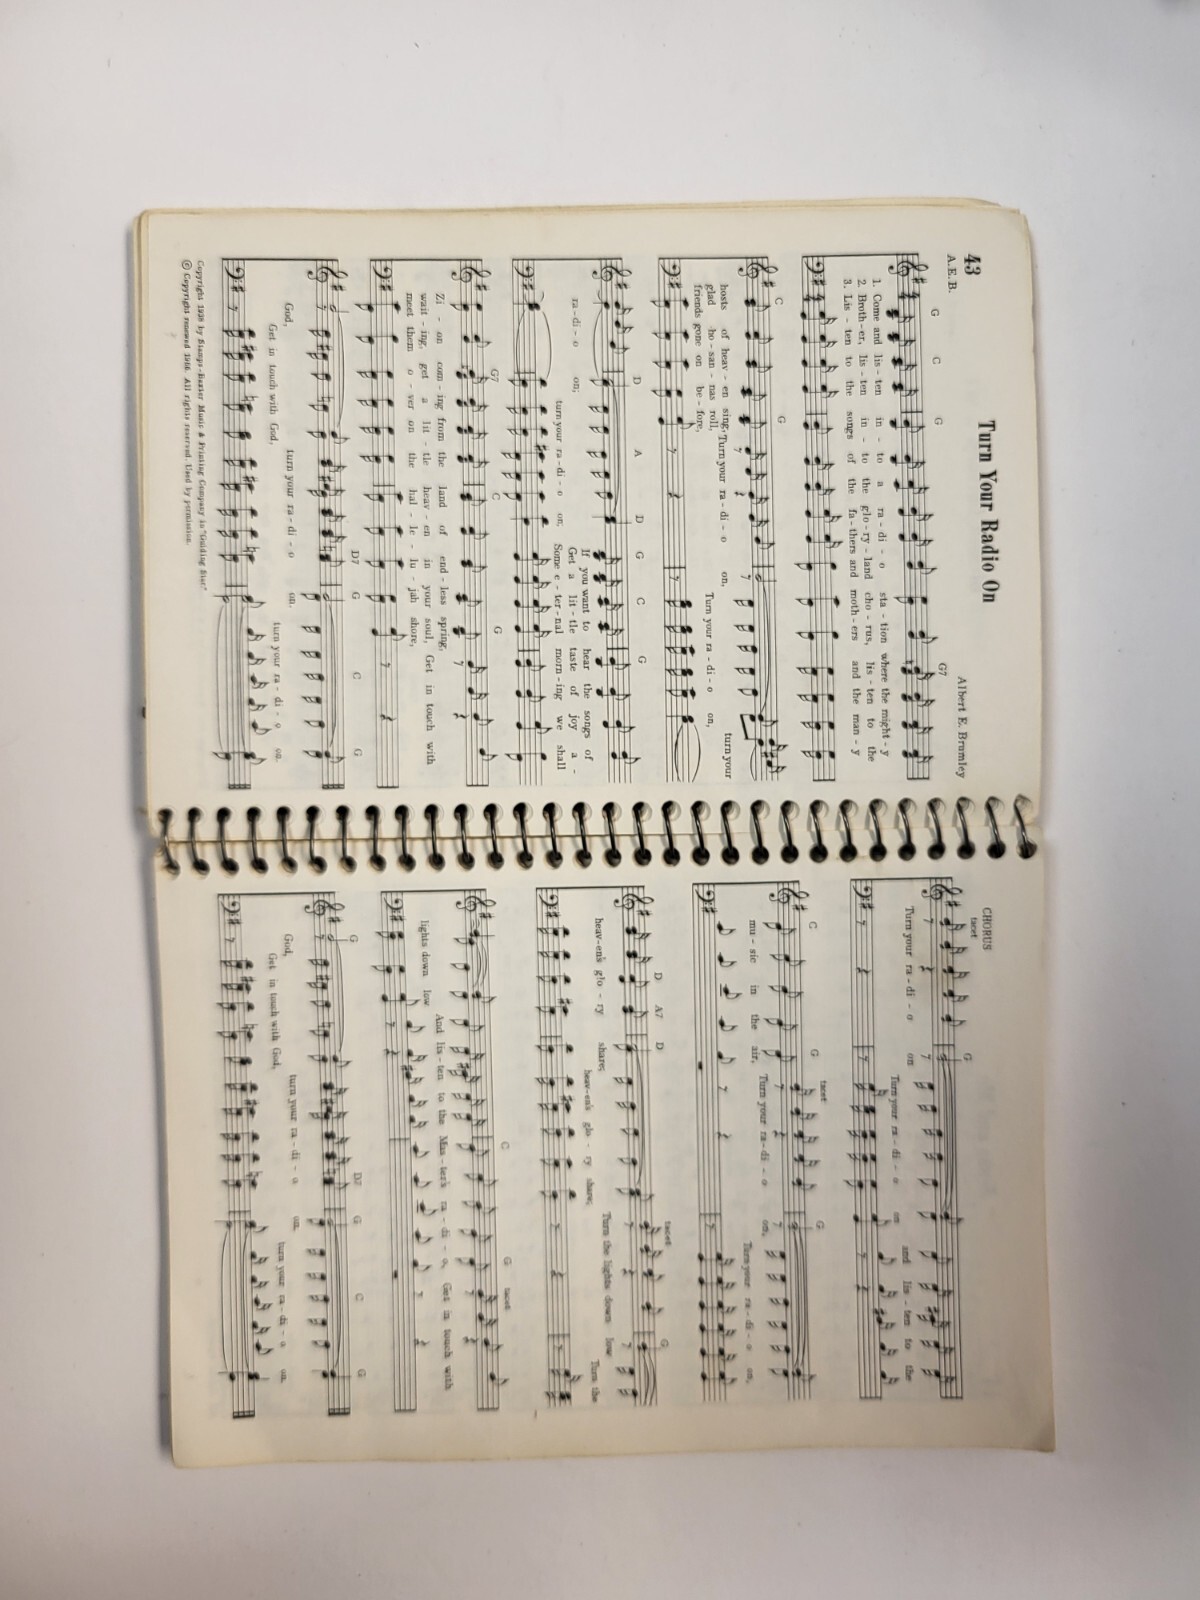 43
Turn Your Radio On
A.E.B.
Albert E. Brumley
G C G G7
1. Come and lis - ten in - to a ra - di - o sta - tion where the might - y
2. Broth - er, lis - ten in - to the glo - ry - land cho - rus, lis - ten to the
3. Lis - ten to the songs of the fa - thers and moth - ers and the man - y
C G
hosts of heav - en sing, Turn your ra - di - o on,
glad ho - san - nas roll,
friends gone on be - fore,
Turn your ra - di - o on, turn your
D A D G C G
ra - di - o on; If you want to hear the songs of
turn your ra - di - o on; Get a lit - tle taste of joy a -
Some e - ter - nal morn - ing we shall
G7 C G
Zi - on com - ing from the land of end - less spring, Get in touch with
wait - ing, get a lit - tle heav - en in your soul,
meet them o - ver on the hal - le - lu - jah shore,
D7 G C G
God, turn your ra - di - o on.
Get in touch with God, turn your ra - di - o on.
Copyright 1938 by Stamps-Baxter Music & Printing Company in "Guiding Star"
© Copyright renewed 1966. All rights reserved. Used by permission.
CHORUS
tacet G
Turn your ra - di - o on and lis - ten to the
Turn your ra - di - o on
C G tacet G
mu - sic in the air, Turn your ra - di - o on,
Turn your ra - di - o on,
D A7 D tacet G
heav - en's glo - ry share; Turn the lights down low
heav - en's glo - ry share; Turn the
C G tacet
lights down low And lis - ten to the Mas - ter's ra - di - o, Get in touch with
G D7 G C G
God, turn your ra - di - o on.
Get in touch with God, turn your ra - di - o on.